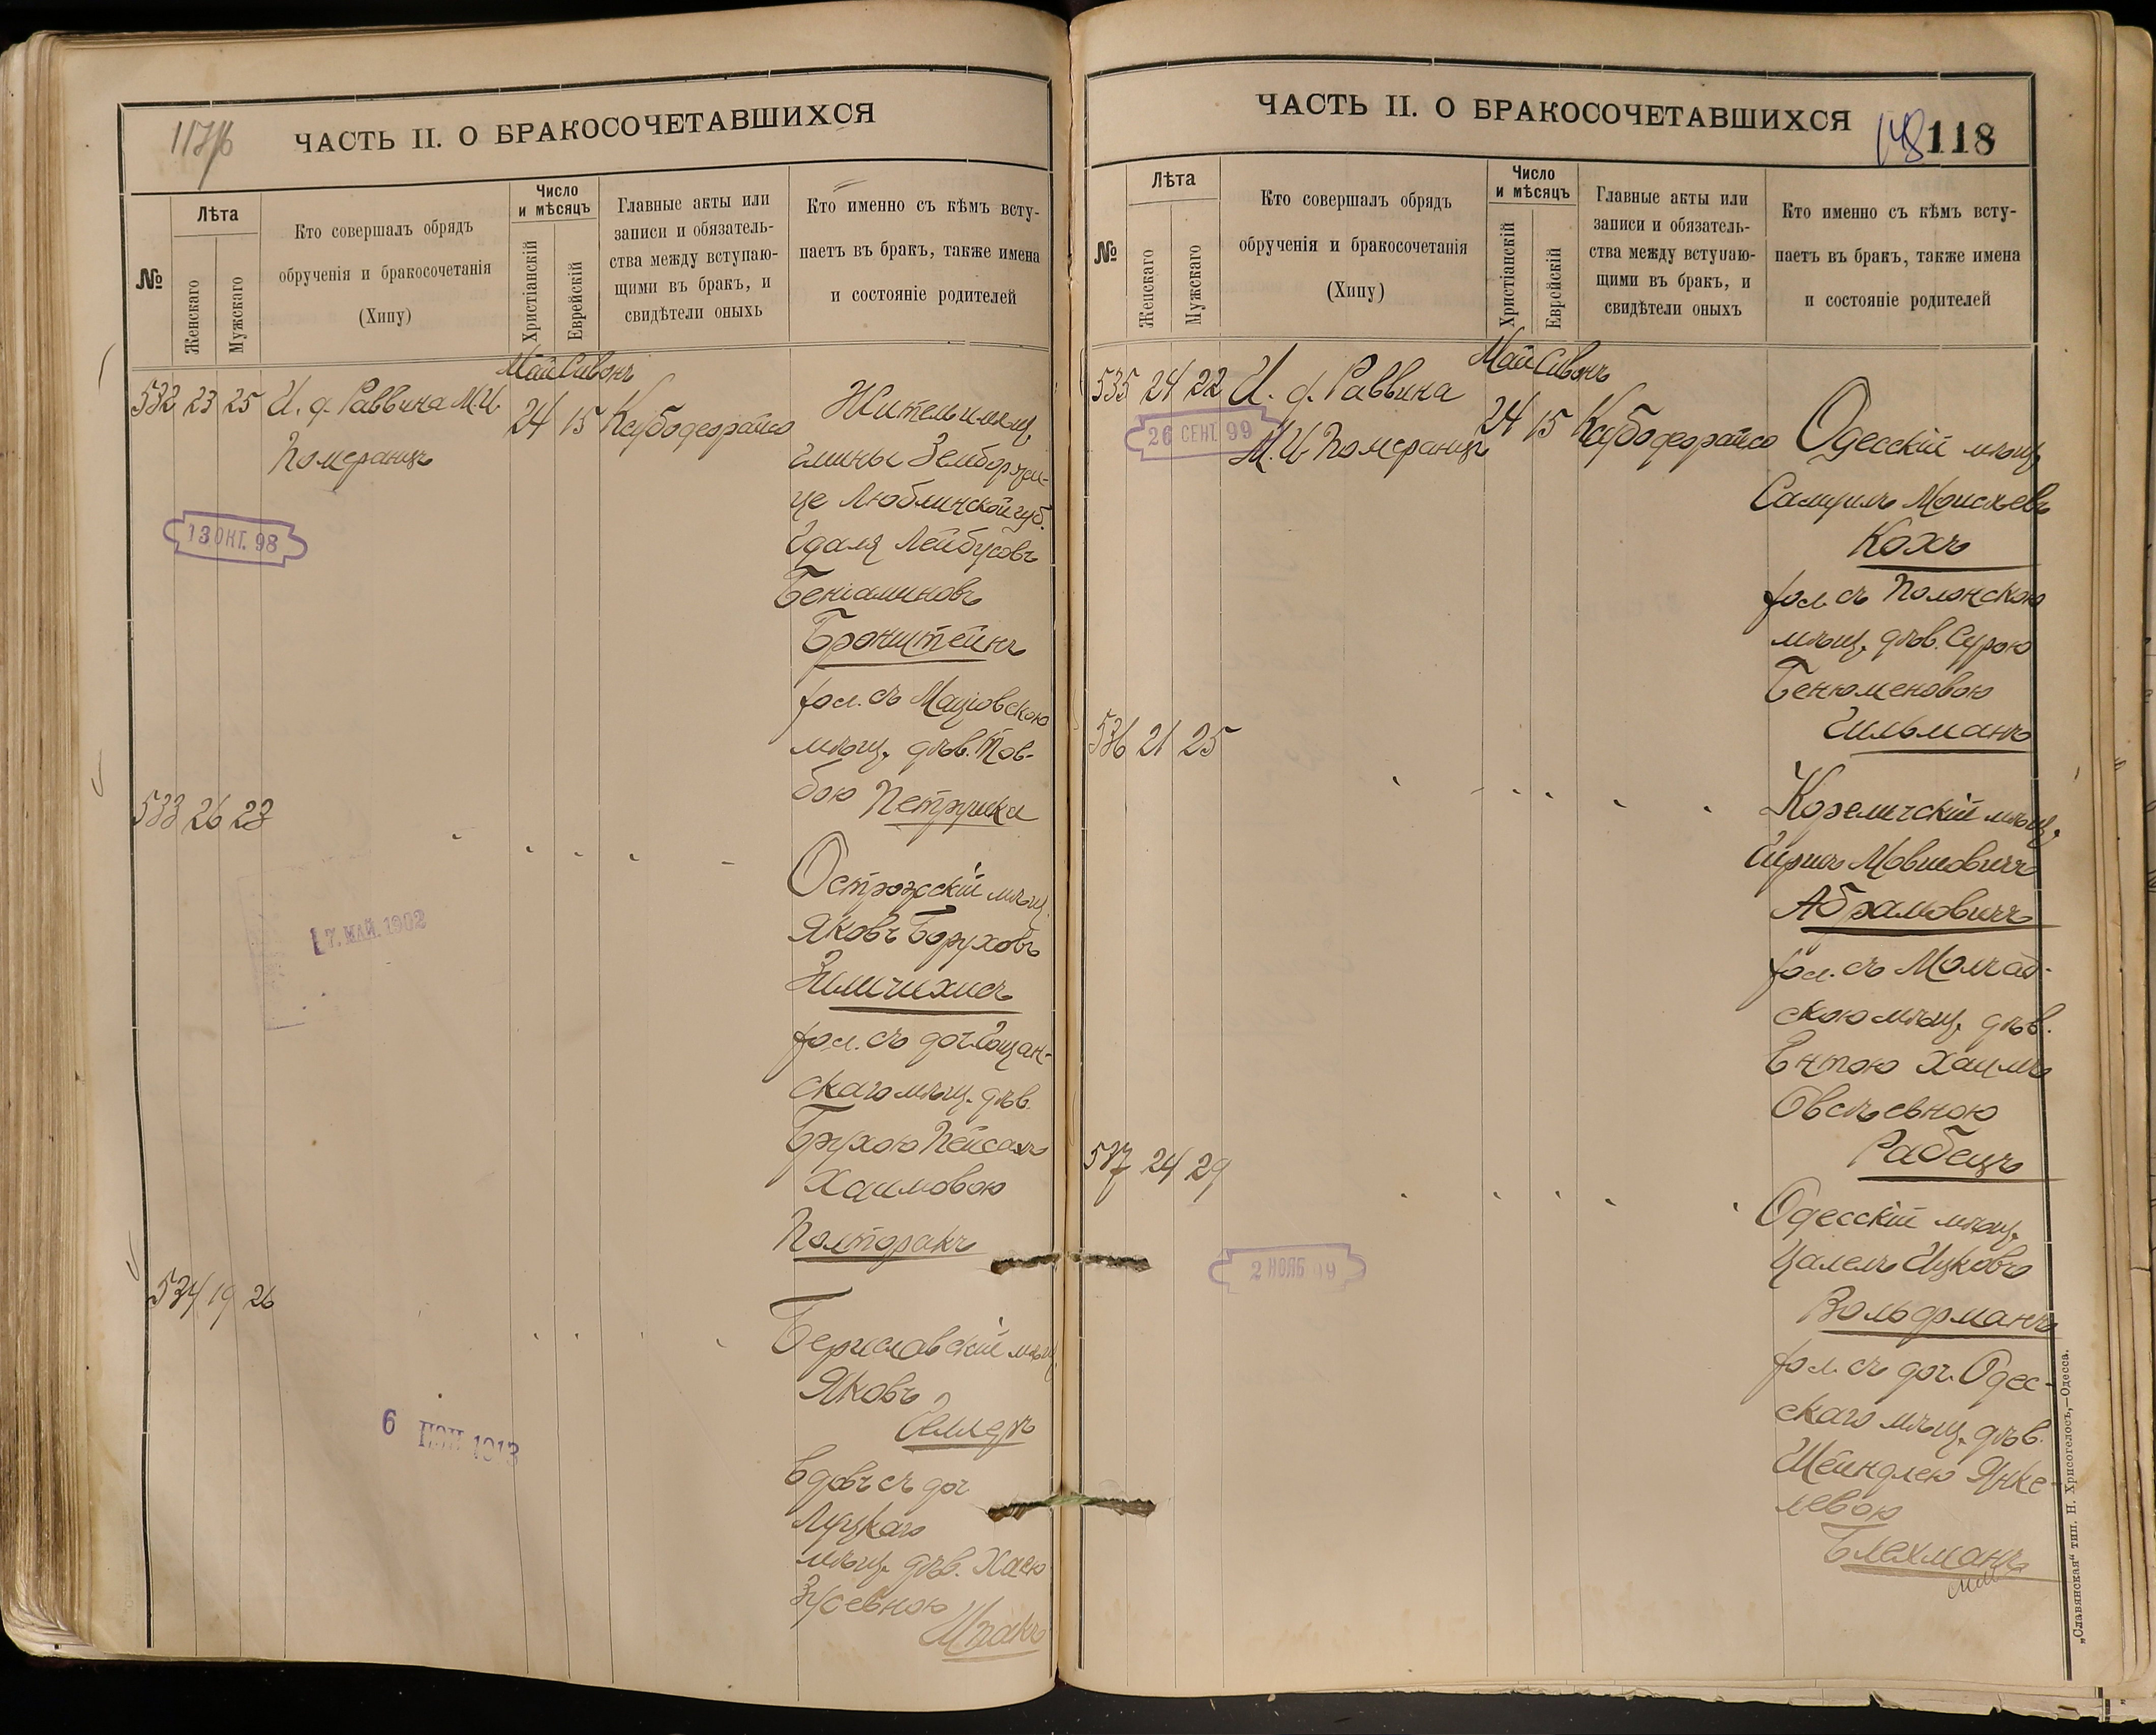 ЧАСТЬ II. О БРАКОСОЧЕТАВШИХСЯ
№
Лѣта
Женскаго
Мужскаго
Кто совершалъ обрядъ
обрученія и бракосочетанія
(Хипу)
Число
и мѣсяцъ
Христіанскій
Еврейскій
Главные акты или
записи и обязатель-
ства между вступаю-
щими въ бракъ, и
свидѣтели оныхъ
Кто именно съ кѣмъ всту-
паетъ въ бракъ, также имена
и состояніе родителей
Май Сивонъ
532 23 25 И. д. Раввина М. И.
Померанцъ
24 15
13 ОКТ. 98
Житель
Люблинской губ.
Лейбусовъ
Беніаминовъ
Бронштейнъ
хол. съ Маціовскою
мѣщ. дѣв. Тов-
бою Петрушка
533 26 23
7. МАЙ. 1902
Острожскій мѣщ.
Яковъ Боруховъ
Зильчихисъ
хол. съ доч. Гощан-
скаго мѣщ. дѣв.
Брухою Пейсахъ
Хаимовою
Полторакъ
534 19 26
6 1913
Бериславскій мѣщ.
Яковъ
вдовъ съ доч
Луцкаго
мѣщ. дѣв. Хаею
Зусевною
Шпакъ
ЧАСТЬ II. О БРАКОСОЧЕТАВШИХСЯ
118
№
Лѣта
Женскаго
Мужскаго
Кто совершалъ обрядъ
обрученія и бракосочетанія
(Хипу)
Число
и мѣсяцъ
Христіанскій
Еврейскій
Главные акты или
записи и обязатель-
ства между вступаю-
щими въ бракъ, и
свидѣтели оныхъ
Кто именно съ кѣмъ всту-
паетъ въ бракъ, также имена
и состояніе родителей
Май Сивонъ
535 24 22 И. д. Раввина
М. И. Померанцъ
24 15
26 СЕНТ. 99
Одесскій мѣщ.
Самуилъ Моисѣевъ
Кохъ
хол. съ Полонскою
мѣщ. дѣв. Сурою
Бенюменовою
Гильманъ
536 21 25
Кореличскій мѣщ.
Гиршъ Мовшовичъ
Абрамовичъ
хол. съ Молчад-
скою мѣщ. дѣв.
Ентою Хаимъ
Овсѣевною
Рабецъ
537 24 29
2 НОЯБ 99
Одесскій мѣщ.
Цалель Ицковъ
Вольфманъ
хол. съ доч. Одес-
скаго мѣщ. дѣв.
Шейндлею Янке-
левою
Блехманъ
„Славянская“ тип. Н. Хрисогелосъ,—Одесса.